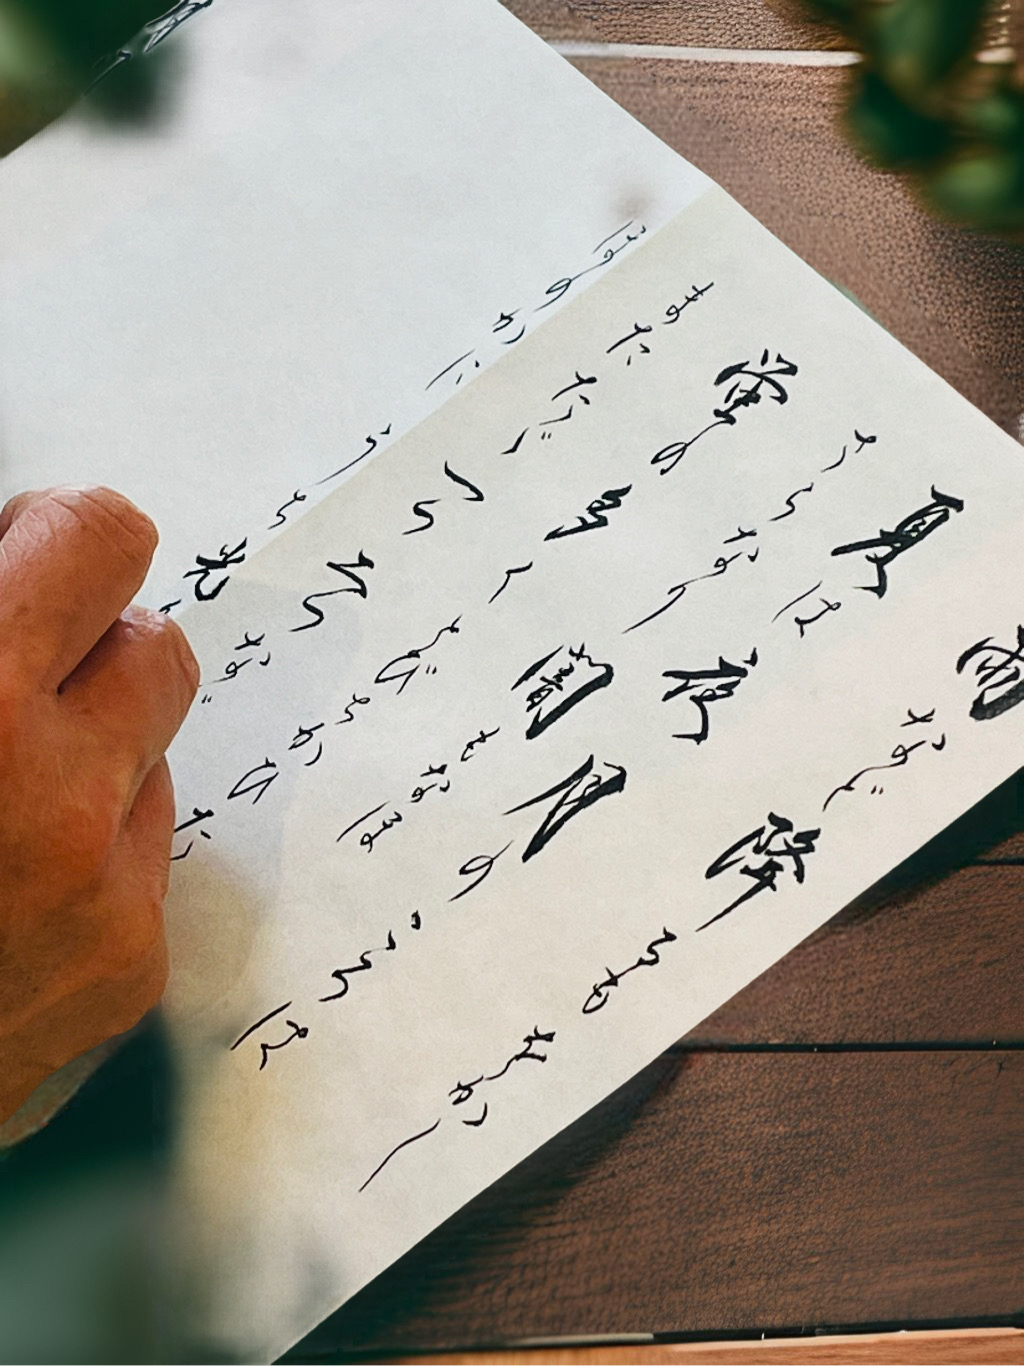 雨など降るもをかし
夏は夜月のころは
さらなり闇もなほ
蛍の多くとびちがひた
まただ一つ二つな
ほのかにうち光